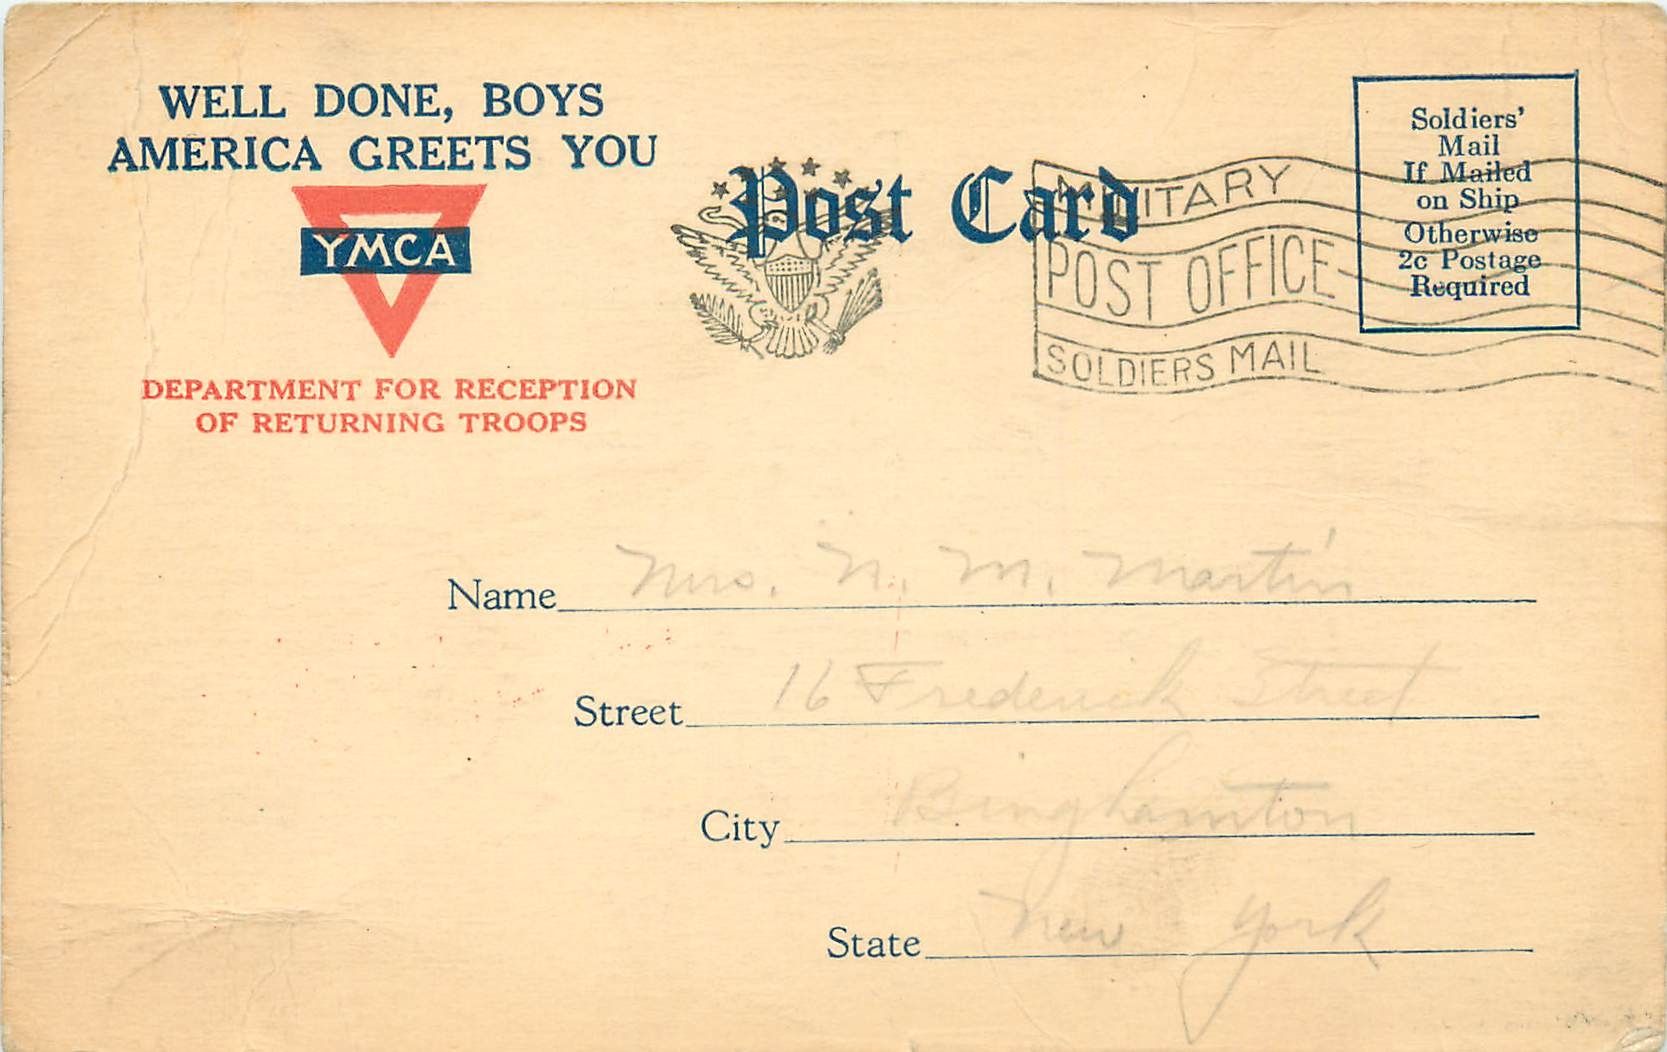 WELL DONE, BOYS
AMERICA GREETS YOU
YMCA
DEPARTMENT FOR RECEPTION
OF RETURNING TROOPS
Post Card
MILITARY
POST OFFICE
SOLDIERS MAIL
Soldiers'
Mail
If Mailed
on Ship
Otherwise
2c Postage
Required
Name Mrs. N. M. Martin
Street 16 Frederick Street
City Binghamton
State New York